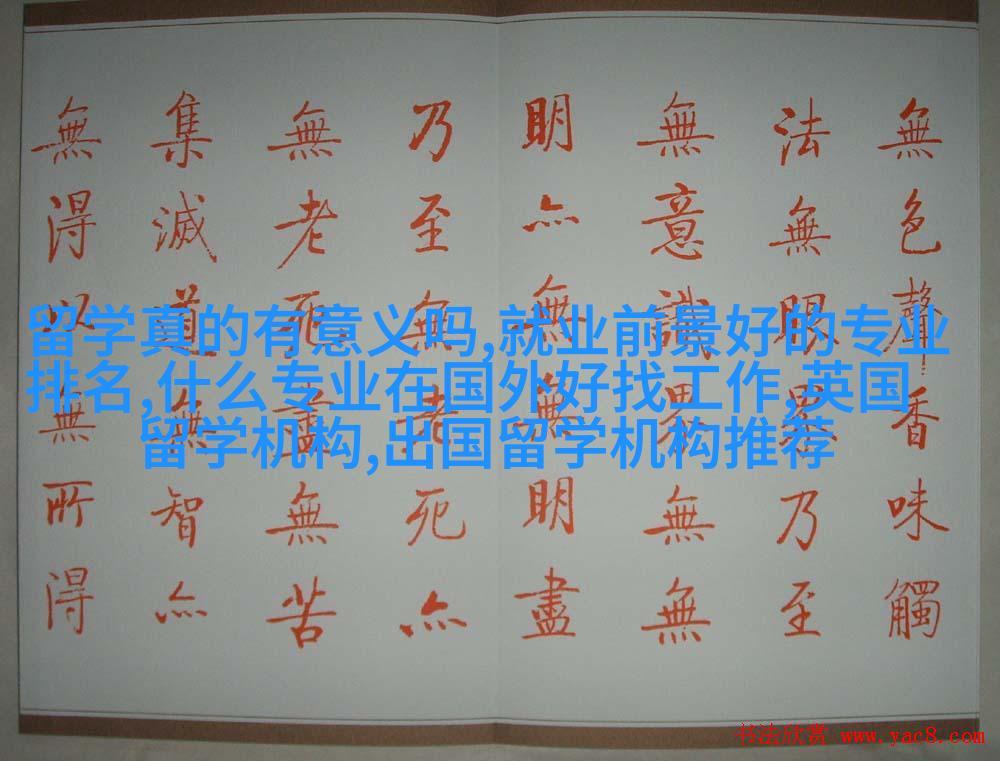 無色聲香味觸
法無眼界乃至
無意識界無無
明亦無無明盡
乃至無老死亦
無老死盡無苦
集滅道無智亦
無得以無所得
留学真的有意义吗,就业前景好的专业
排名,什么专业在国外好找工作,英国
留学机构,出国留学机构推荐
书法欣赏 www.yac8.com